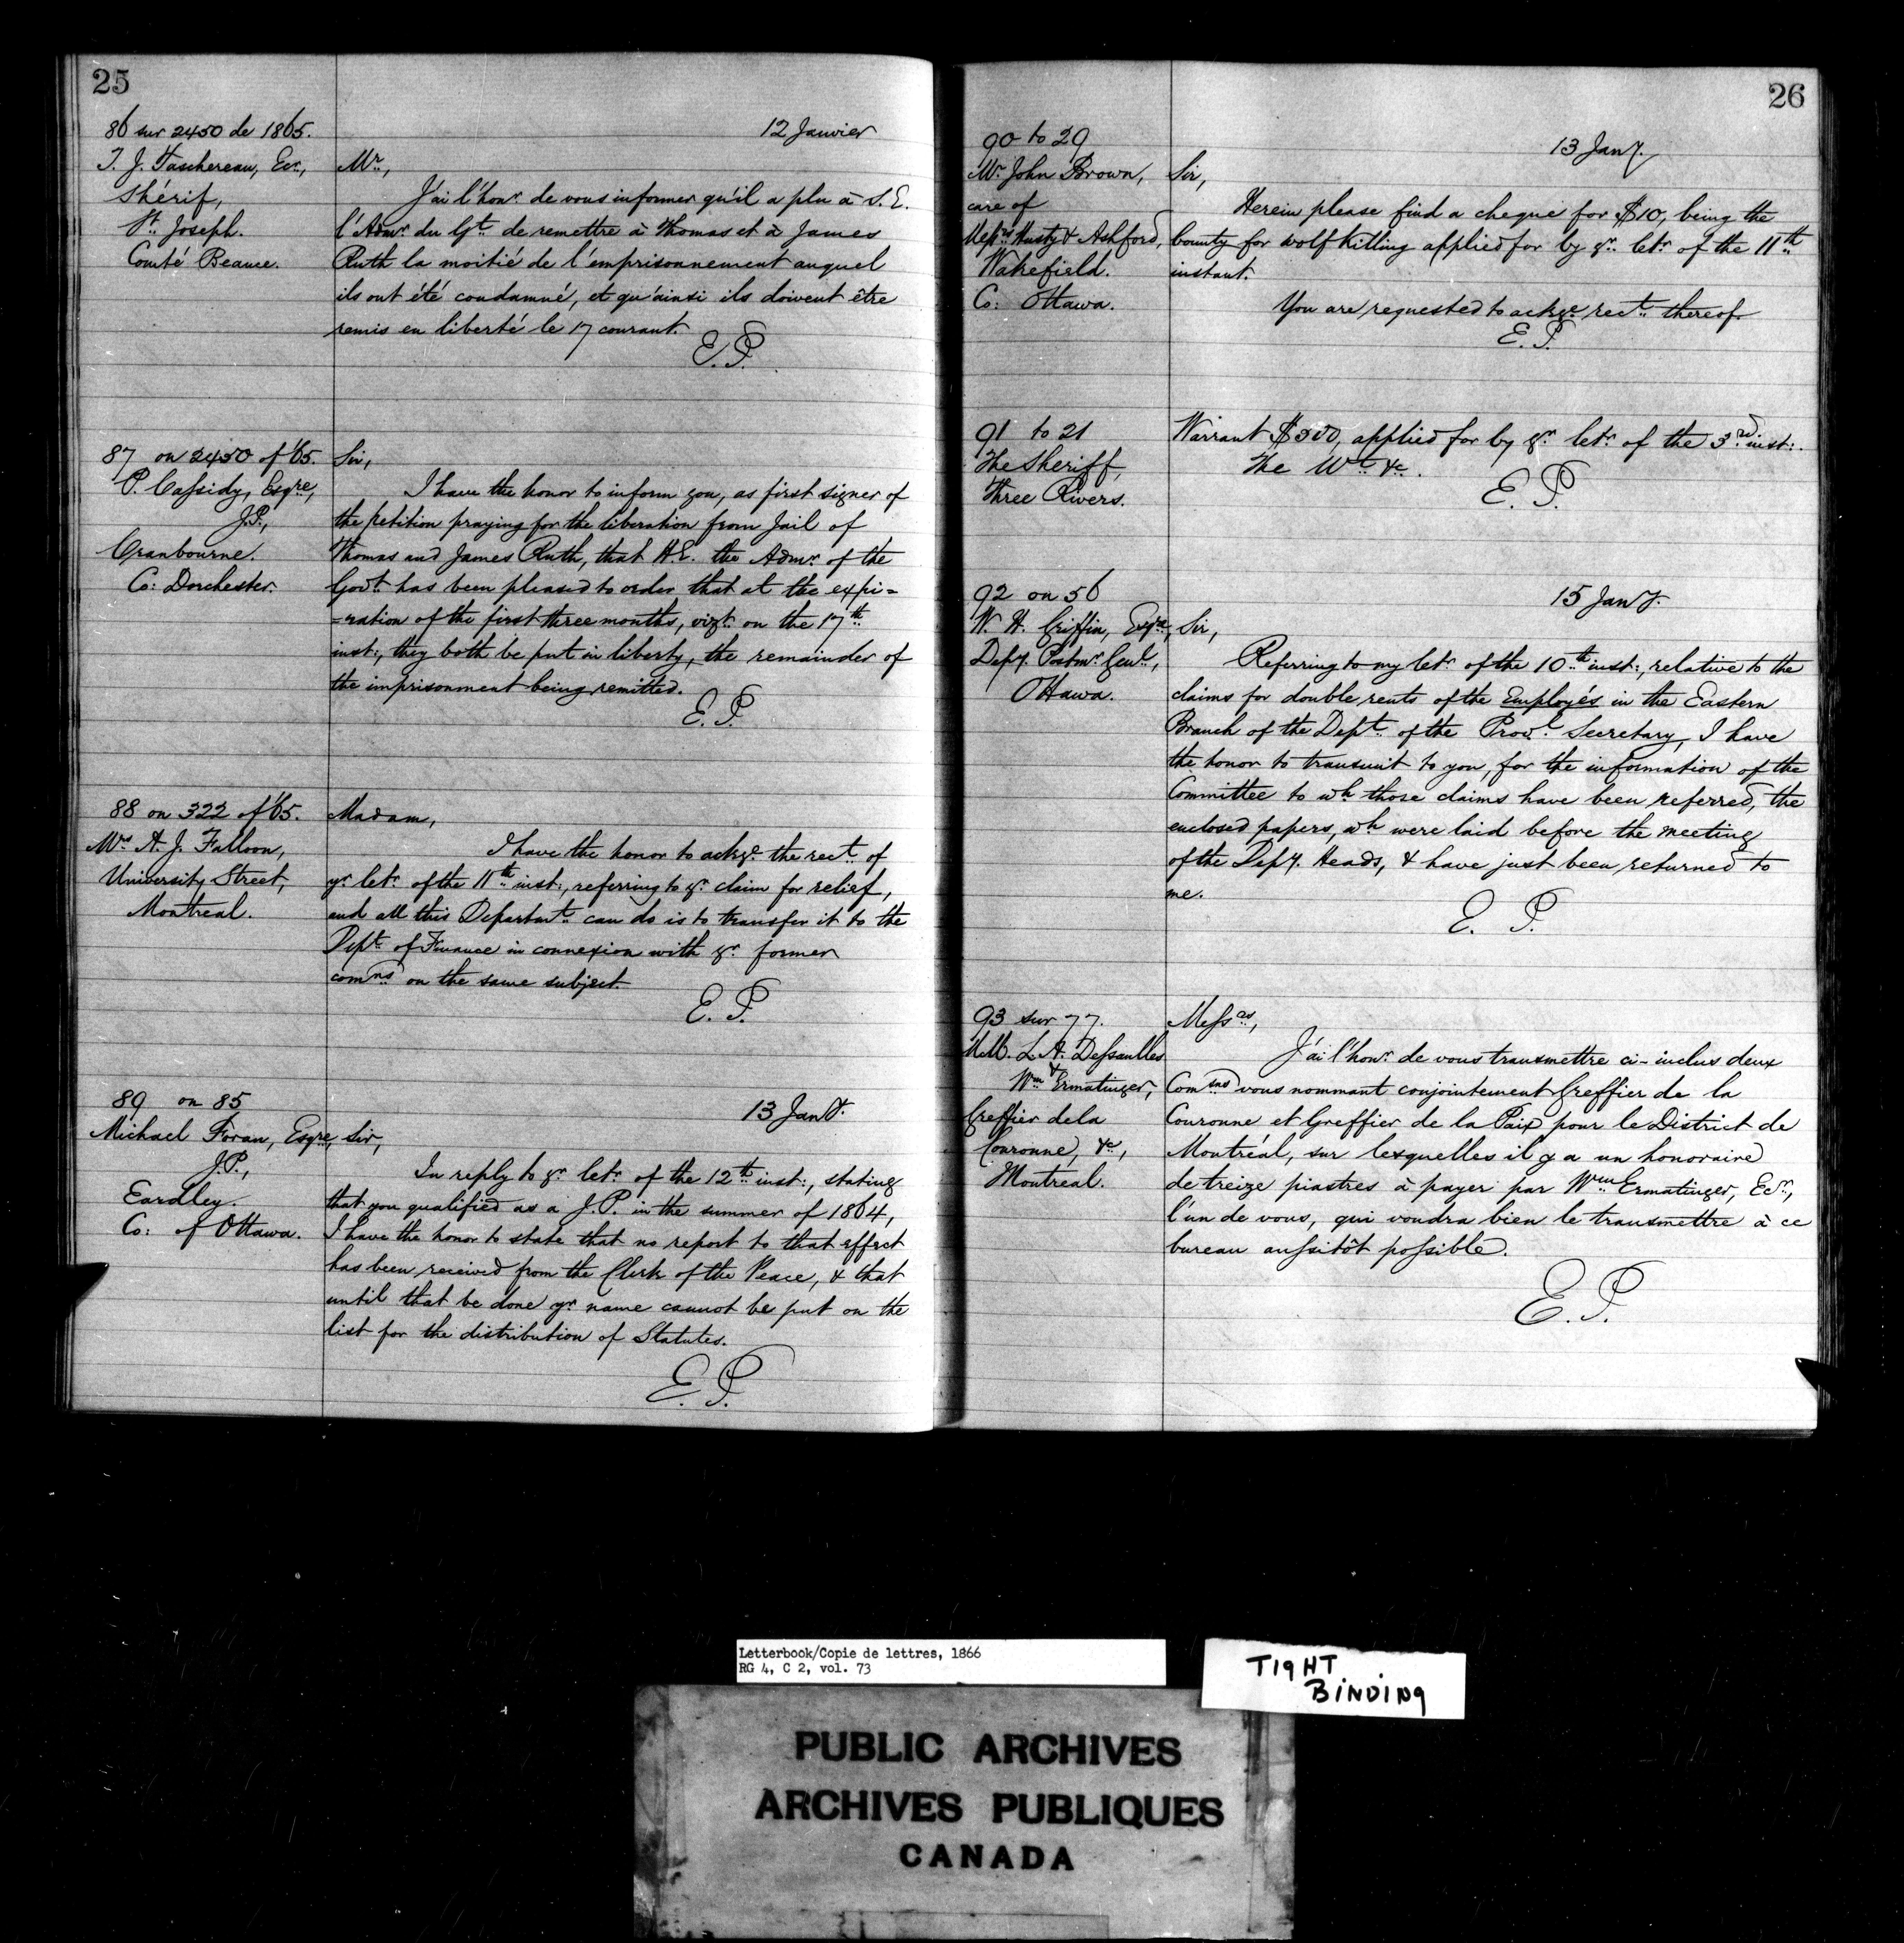 25
86 sur 2450 de 1865.
T. J. Taschereau, Ecr.,
Shérif,
St. Joseph.
Comté Beauce.
12 Janvier
Mr.,
J'ai l'honr. de vous informer qu'il a plu à S. E.
l'Admr. du Gt. de remettre à Thomas et à James
Ruth la moitié de l'emprisonnement auquel
ils ont été condamné, et qu'ainsi ils doivent être
remis en liberté le 17 courant.
E. P.
87 on 2450 of '65.
P. Cassidy, Esqre,
J.P.,
Cranbourne.
Co: Dorchester.
Sir,
I have the honor to inform you, as first signer of
the petition praying for the liberation from Jail of
Thomas and James Ruth, that H.E. the Admr. of the
Govt. has been pleased to order that at the expi=
=ration of the first three months, vizt. on the 17th
inst:, they both be put in liberty, the remainder of
the imprisonment being remitted.
E. P.
88 on 322 of '65.
Mrs A. J. Falloon,
University Street,
Montreal.
Madam,
I have the honor to ackge. the rect. of
yr letr. of the 11th inst:, referring to yr. claim for relief,
and all this Departmt. can do is to transfer it to the
Dept. of Finance in connexion with yr. former
comns on the same subject.
E. P.
89 on 85
Michael Foran, Esqre,
J.P.,
Eardley.
Co: of Ottawa.
13 Jany.
Sir,
In reply to yr. letr. of the 12th inst:, stating
that you qualified as a J.P. in the summer of 1864,
I have the honor to state that no report to that effect
has been received from the Clerk of the Peace, & that
until that be done yr. name cannot be put on the
list for the distribution of Statutes.
E. P.
26
90 to 29
Mr. John Brown,
care of
Messrs & Ashford,
Wakefield.
Co: Ottawa.
13 Jany.
Sir,
Herein please find a cheque for $10, being the
bounty for wolf killing applied for by yr. letr. of the 11th
instant.
You are requested to ackge. rect. thereof.
E. P.
91 to 21
The Sheriff,
Three Rivers.
Warrant $500, applied for by yr. letr. of the 3rd inst:.
The Wt. &c.
E. P.
92 on 56
W. H. Griffin, Esqre,
Depy. Postmr. Genl.,
Ottawa.
15 Jany.
Sir,
Referring to my letr. of the 10th inst:, relative to the
claims for double rents of the Employés in the Eastern
Branch of the Dept. of the Provl. Secretary, I have
the honor to transmit to you, for the information of the
Committee to wh those claims have been referred, the
enclosed papers, wh were laid before the meeting
of the Depy. Heads, & have just been returned to
me.
E. P.
93 sur 77.
M.M. L. A. Dessaulles
&
Wm Ermatinger,
Greffier de la
Couronne, &c,
Montréal.
Messrs.,
J'ai l'honr. de vous transmettre ci-inclus deux
Comsns vous nommant conjointement Greffier de la
Couronne et Greffier de la Paix pour le District de
Montréal, sur lesquelles il y a un honoraire
de treize piastres à payer par Wm Ermatinger, Ecr.,
l'un de vous, qui voudra bien le transmettre à ce
bureau aussitôt possible.
E. P.
Letterbook/Copie de lettres, 1866
RG 4, C 2, vol. 73
TIGHT
BINDING
PUBLIC ARCHIVES
ARCHIVES PUBLIQUES
CANADA